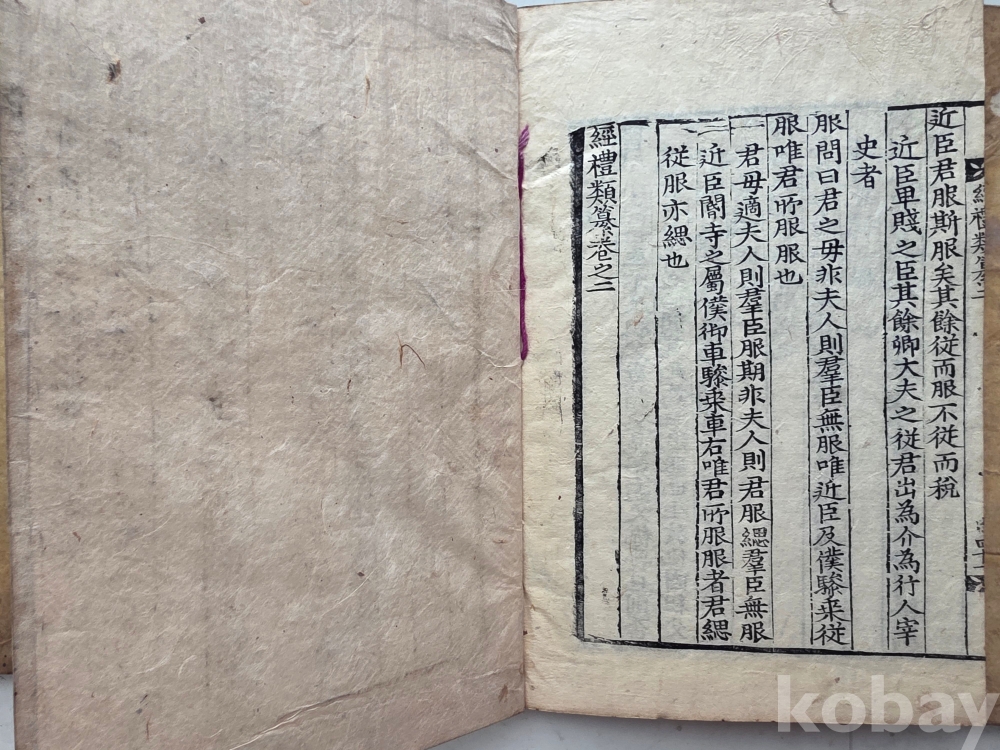 經禮類纂二
近臣君服斯服矣其餘從而服不從而稅
近臣卑賤之臣其餘卿大夫之從君出為介為行人宰
史者
服問曰君之母非夫人則羣臣無服唯近臣及僕驂乗從
服唯君所服服也
一君母適夫人則羣臣服期非夫人則君服緦羣臣無服
一近臣閽寺之屬僕御車驂乗車右唯君所服服者君緦
從服亦緦也
經禮類纂卷之二
kobay